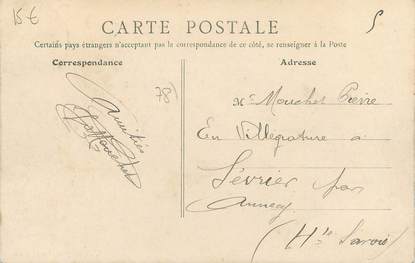 15 €
5
CARTE POSTALE
Certains pays étrangers n'acceptant pas la correspondance de ce côté, se renseigner à la Poste
Correspondance
Adresse
78
Amitiés
Mr Mouchet Pierre
En Villégiature à
Sévrier par
Annecy
(Hte Savoie)